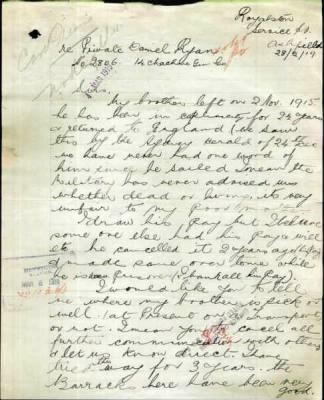 Royalston
Service St
Ashfield
28/2/19
re Private Daniel Ryan
No 2806. 14
Sirs.
My brother left on 2 Nov. 1915
he has been in for 2½ years
& returned to England (we saw
this by the Sydney Herald of 24 Dec
we have never had one word of
him since he sailed I mean the
Military has never advised us
whether dead or wrong, its very
unfair to my people.
I draw his Pay but I believe
some one else had his Pay & will
etc he cancelled it 2 years ago
& made same over to me while
he was Prisoner
I would like you to tell
me where my brother is sick or
well (at Present on Transport)
or not. I mean you to cancel all
further communication with others
& let us know direct. I have
tried this way for 3 years. the
Barracks here have been very
good.